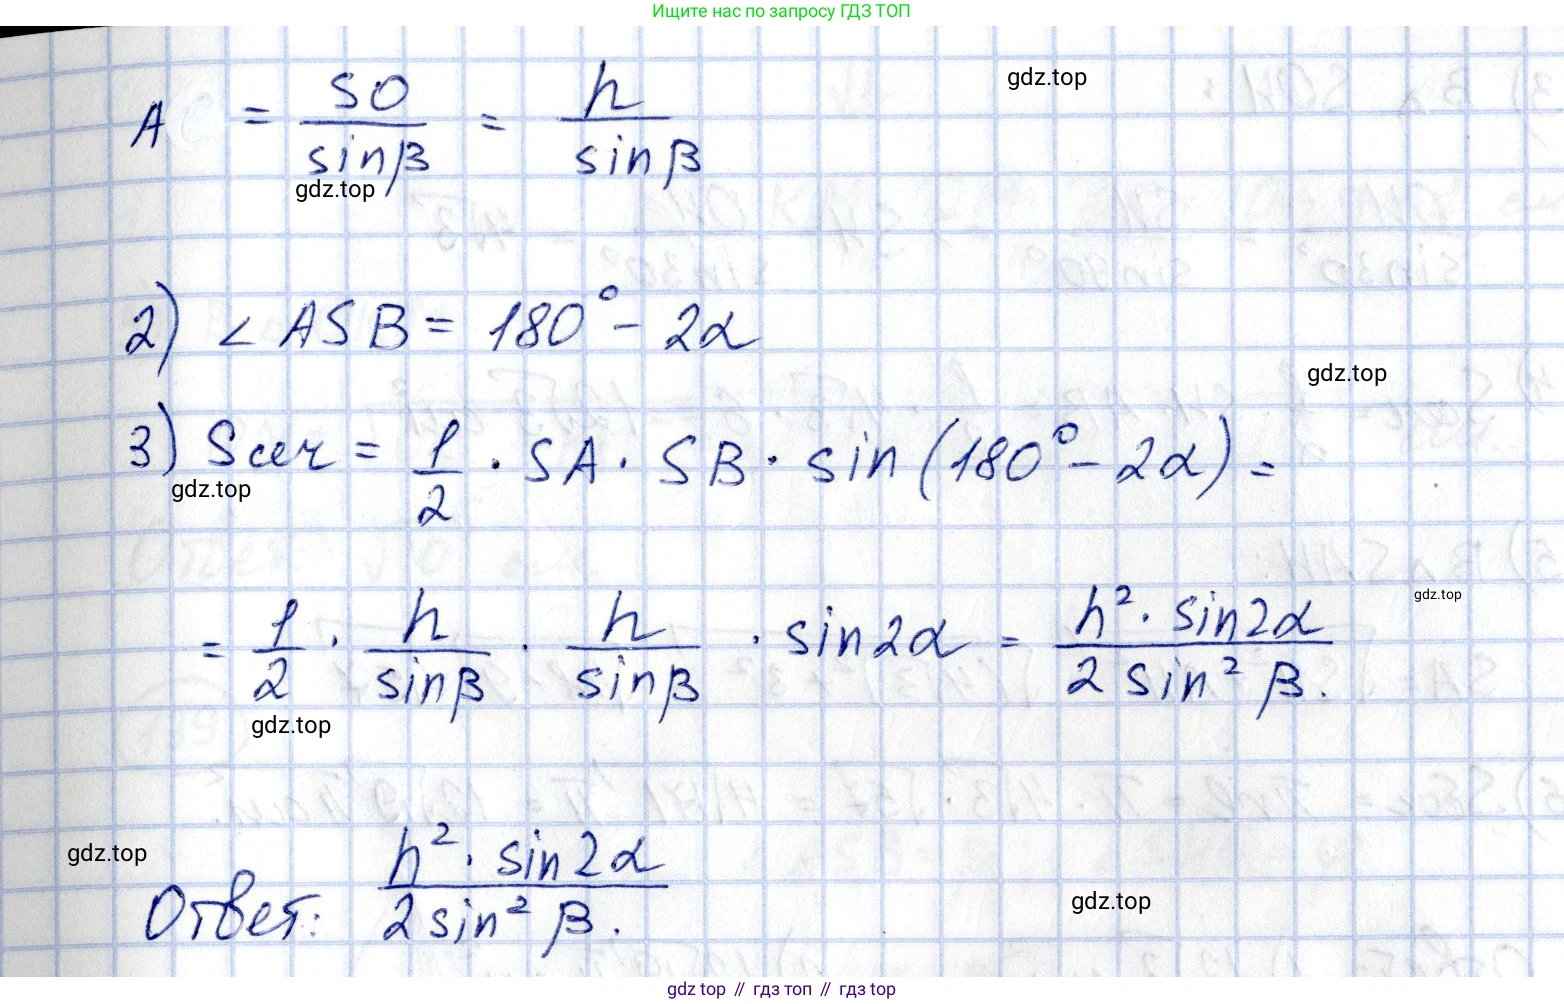 Ищите нас по запросу ГДЗ ТОП
gdz.top
A = SO/sinβ = h/sinβ
gdz.top
2) ∠ASB = 180° - 2α
gdz.top
3) Sсеч = 1/2 · SA · SB · sin(180° - 2α) =
gdz.top
= 1/2 · h/sinβ · h/sinβ · sin2α = h² · sin2α / 2 sin² β.
gdz.top
gdz.top
gdz.top
Ответ: h² · sin2α / 2 sin² β.
gdz.top
gdz top // гдз топ // гдз top